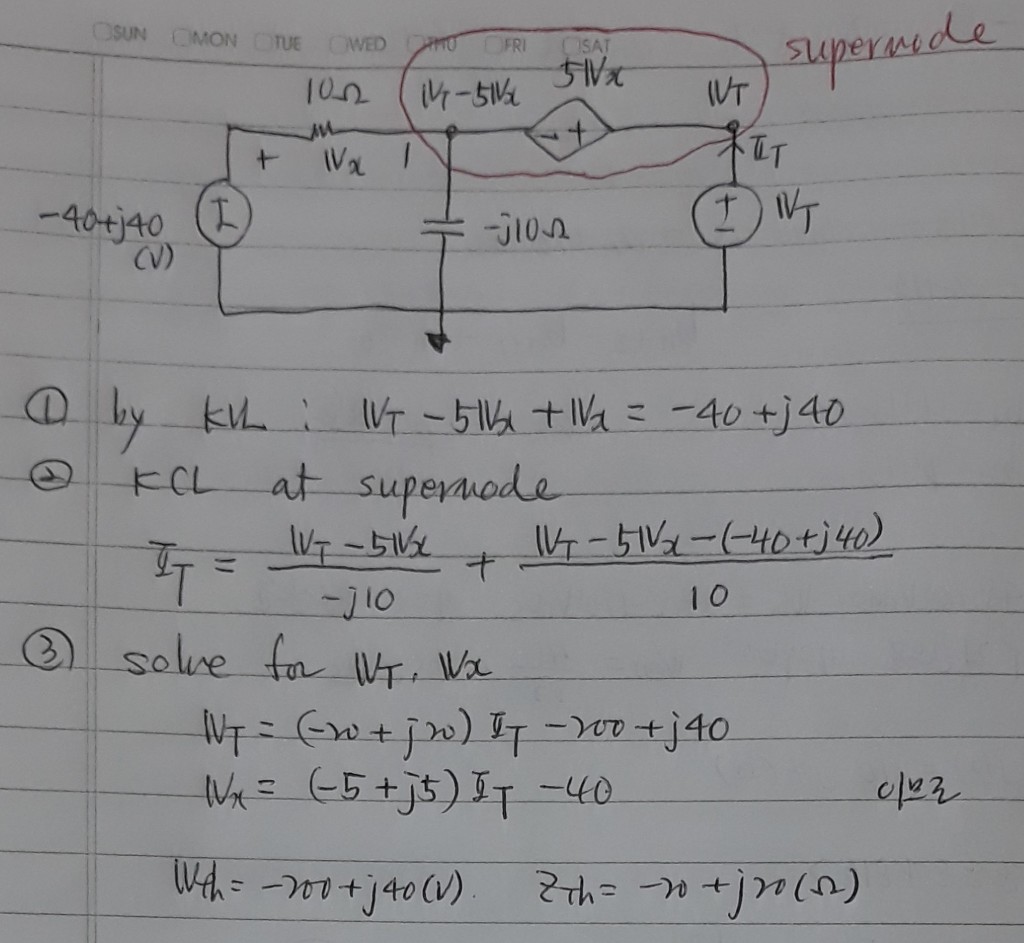 SUN MON TUE WED THU FRI SAT
supernode
10Ω VT-5Vx 5Vx VT
+ Vx - + IT
-40+j40 (V)
-j10Ω
+ - VT
① by KVL : VT - 5Vx + Vx = -40 + j40
② KCL at supernode
IT = (VT - 5Vx)/(-j10) + (VT - 5Vx - (-40 + j40))/10
③ solve for VT, Vx
VT = (-20 + j20) IT - 200 + j40
Vx = (-5 + j5) IT - 40 이므로
Vth = -200 + j40 (V). ZTh = -20 + j20 (Ω)